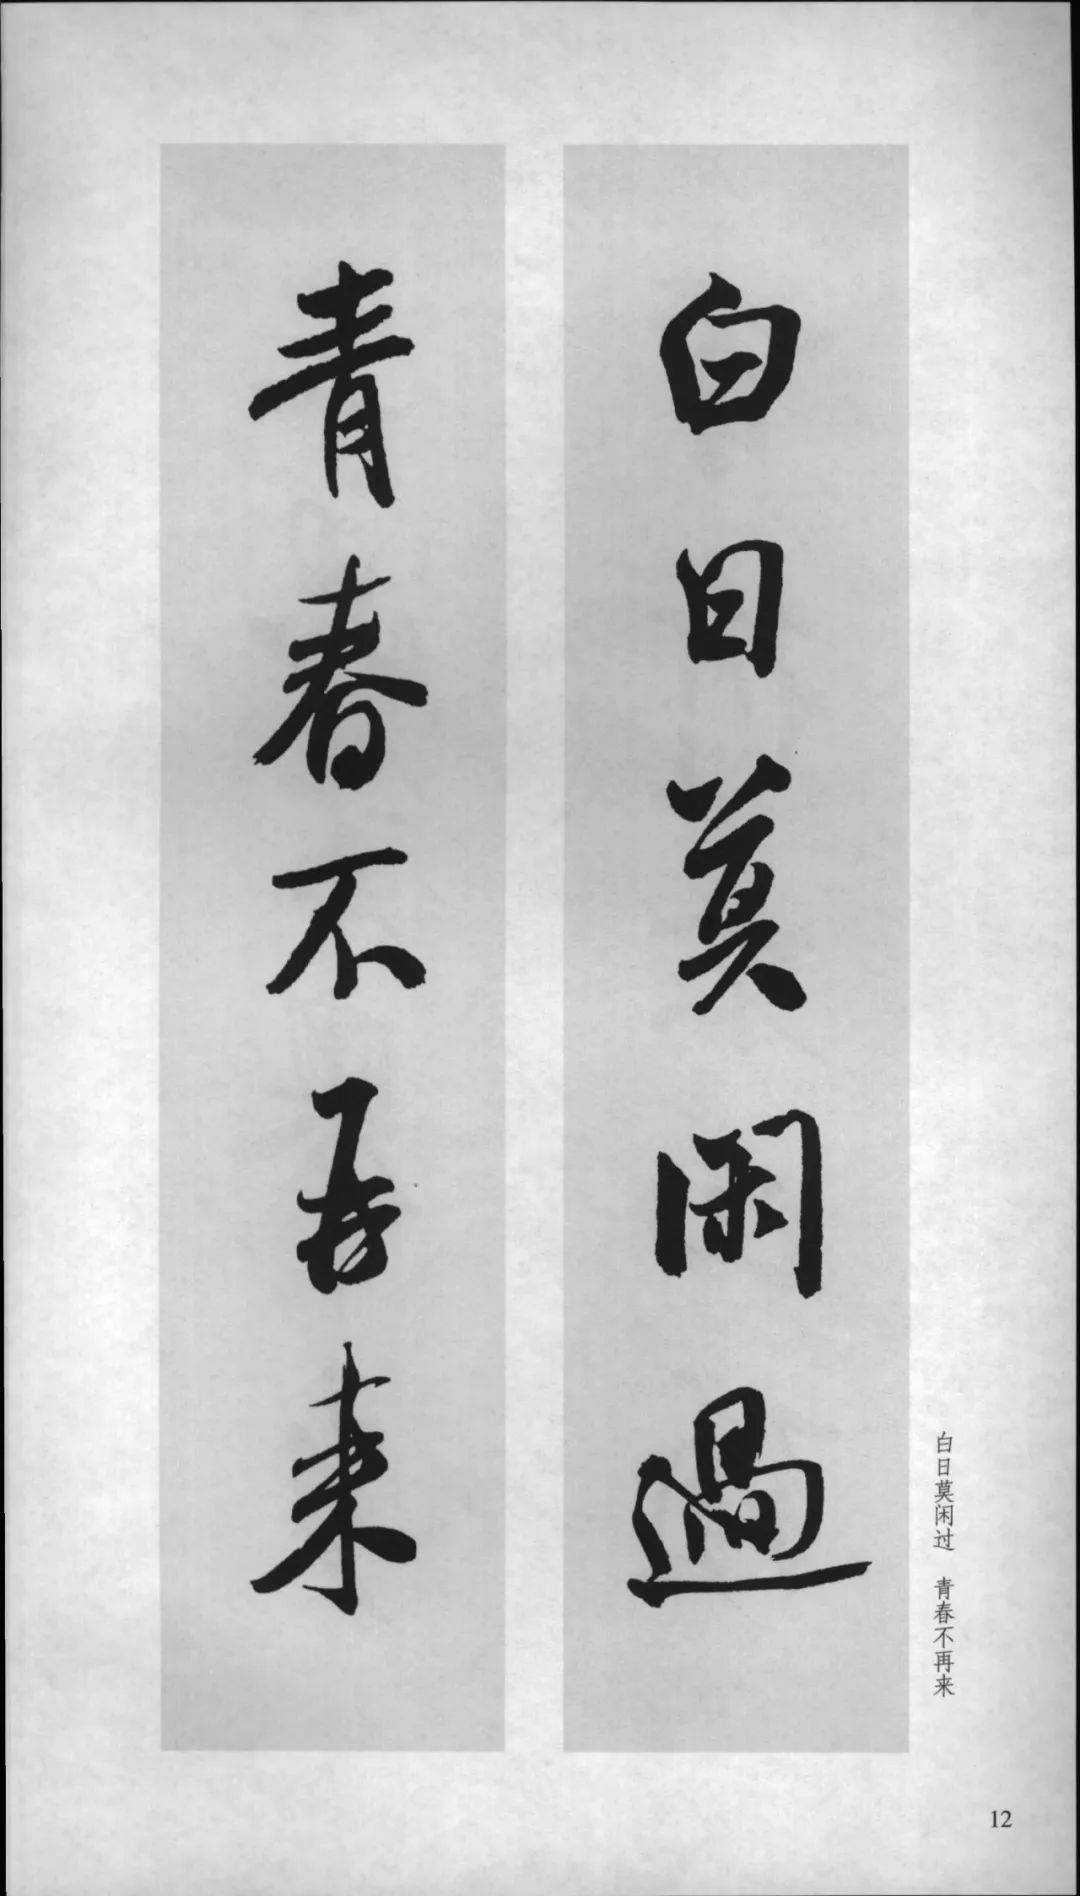 白日莫闲過
青春不再来
白日莫闲过　青春不再来
12